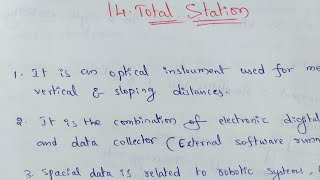 14. Total Station
1. It is an optical instrument used for
vertical & sloping distances.
2. It is the combination of electronic digital
and data collector (External software
3. Spacial data is related to robotic systems.